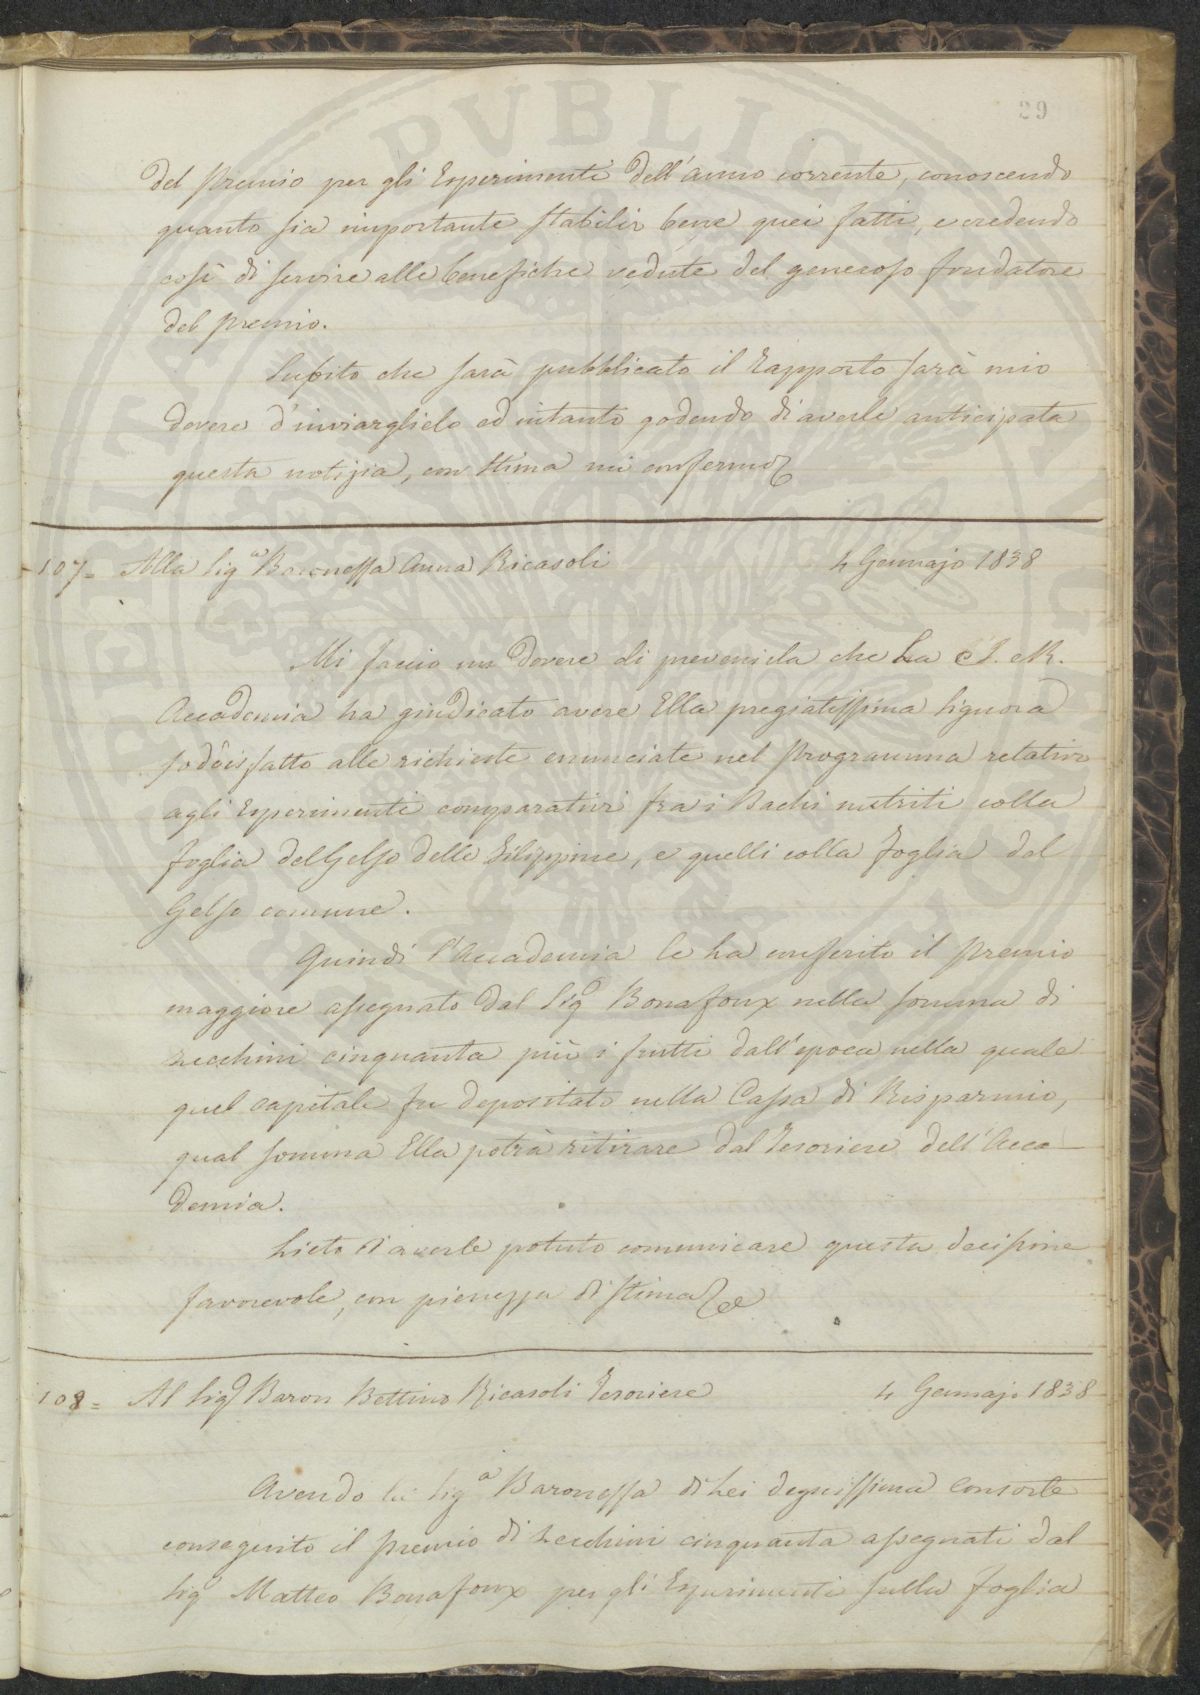 29
del premio per gli Esperimenti dell'anno corrente, conoscendo
quanto sia importante stabilir bene quei fatti, e credendo
così di servire alle benefiche vedute del generoso fondatore
del premio.
Subito che sarà pubblicato il Rapporto sarà mio
dovere d'inviarglielo ed intanto godendo di averle anticipata
questa notizia, con stima mi confermo
107= Alla Sig.a Baronessa Anna Ricasoli 4 Gennajo 1838
Mi faccio un dovere di prevenirla che La I. e R.
Accademia ha giudicato avere Ella pregiatissima Signora
sodisfatto alle richieste enunciate nel Programma relativo
agli Esperimenti comparativi fra i Bachi nutriti colla
foglia del Gelso delle Filippine, e quelli colla foglia del
Gelso comune.
Quindi l'Accademia le ha conferito il Premio
maggiore assegnato dal Sig Bonafoux nella somma di
zecchini cinquanta più i frutti dall'epoca nella quale
quel capitale fu depositato nella Cassa di Risparmio,
qual somma Ella potrà ritirare dal Tesoriere dell'Acca-
demia.
Lieto d'averle potuto comunicare questa decisione
favorevole, con pienezza di stima
108= Al Sig Baron Bettino Ricasoli Tesoriere 4 Gennajo 1838
Avendo la Sig.a Baronessa di Lei degnissima Consorte
conseguito il premio di Zecchini cinquanta assegnati dal
Sig Matteo Bonafoux per gli Esperimenti sulla foglia